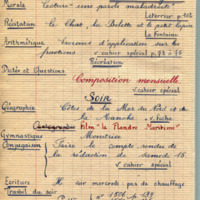 Morale Lecture "une parole maladroite"
Leterrier p.106
Récitation Le Chat, la Belette et le petit lapin
La Fontaine
Arithmétique Exercices d'application sur les
fractions v cahier spécial p.
Récréation
Dictée et Questions
Composition mensuelle
v cahier spécial
Soir
Géographie Côtes de la Mer du Nord et de
la Manche v. fiche
Film "la Flandre Maritime"
Gymnastique Montrée
Conjugaison Faire le compte rendu de
la rédaction de samedi 16
v cahier spécial
Ecriture
Travail du soir mercredi: pas de chauffage